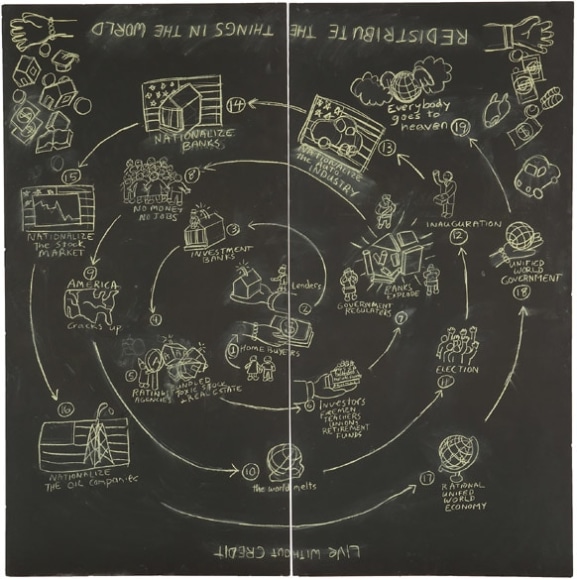 REDISTRIBUTE THE THINGS IN THE WORLD
14
NATIONALIZE
BANKS
13
NATIONALIZE
THE AUTO
INDUSTRY
Everybody
goes to
heaven 19
15
NATIONALIZE
THE STOCK
MARKET
8
NO MONEY
NO JOBS
3
INVESTMENT
BANKS
INAUGURATION
12
UNIFIED
WORLD
GOVERNMENT
18
9
AMERICA
cracks up
Lenders
2
BANKS
EXPLODE
GOVERNMENT
REGULATORS
7
4
1 HOME BUYERS
5
RATING
AGENCIES
TOXIC STOCK
REAL ESTATE
6 INVESTORS
FIREMEN
TEACHERS
UNIONS
RETIREMENT
FUNDS
ELECTION
11
16
NATIONALIZE
THE OIL COMPANIES
10
the world melts
17
RATIONAL
UNIFIED
WORLD
ECONOMY
LIVE WITHOUT CREDIT